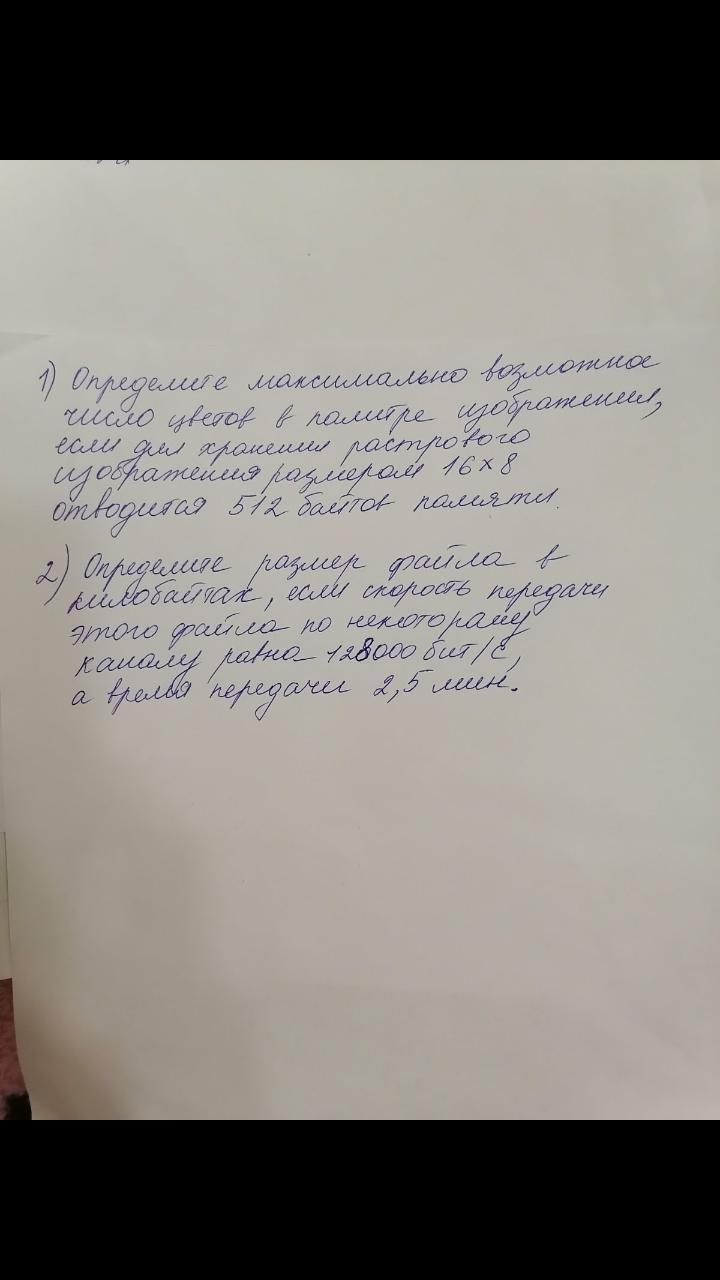 1) Определите максимально возможное
число цветов в палитре изображения,
если для хранения растрового
изображения размером 16×8
отводится 512 байтов памяти.
2) Определите размер файла в
килобайтах, если скорость передачи
этого файла по некоторому
каналу равна 128000 бит/с,
а время передачи 2,5 мин.